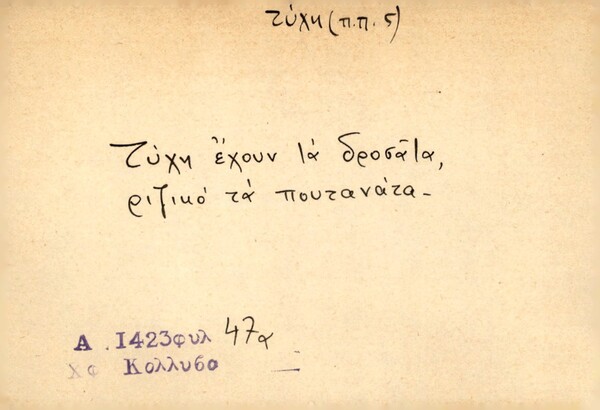 τύχη (π.π. ς)
Τύχη ἔχουν τά δροσᾶτα,
ριζικό τά πουτανάτα -
Α .1423φυλ 47α
ΧΦ Κολλυβα